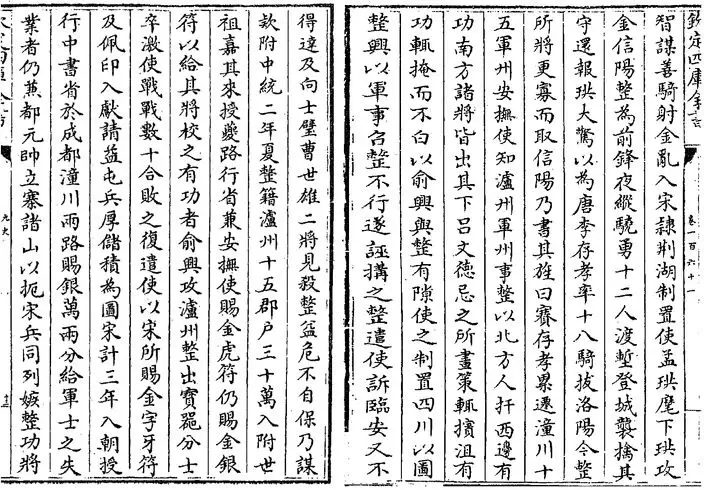 欽定四庫全書
卷一百六十一
智謀善騎射金亂入宋隷荆湖制置使孟珙麾下珙攻
金信陽整為前鋒夜縱驍勇十二人渡塹登城襲擒其
守還報珙大驚以為唐李存孝率十八騎拔洛陽今整
所將更寡而取信陽乃書其旌曰賽存孝累遷潼川十
五軍州安撫使知瀘州軍州事整以北方人扞西邊有
功南方諸將皆出其下吕文徳忌之所畫策輒擯沮有
功輒掩而不白以俞興與整有隙使之制置四川以圖
整興以軍事召整不行遂誣搆之整遣使訴臨安又不
得達及向士璧曹世雄二將見殺整益危不自保乃謀
款附中統二年夏整籍瀘州十五郡户三十萬入附世
祖嘉其來授夔路行省兼安撫使賜金虎符仍賜金銀
符以給其將校之有功者俞興攻瀘州整出寳器分士
卒激使戰戰數十合敗之復遣使以宋所賜金字牙符
及佩印入獻請益屯兵厚儲積為圖宋計三年入朝授
行中書省於成都潼川兩路賜銀萬兩分給軍士之失
業者仍兼都元帥立寨諸山以扼宋兵同列嫉整功將
元史
十三